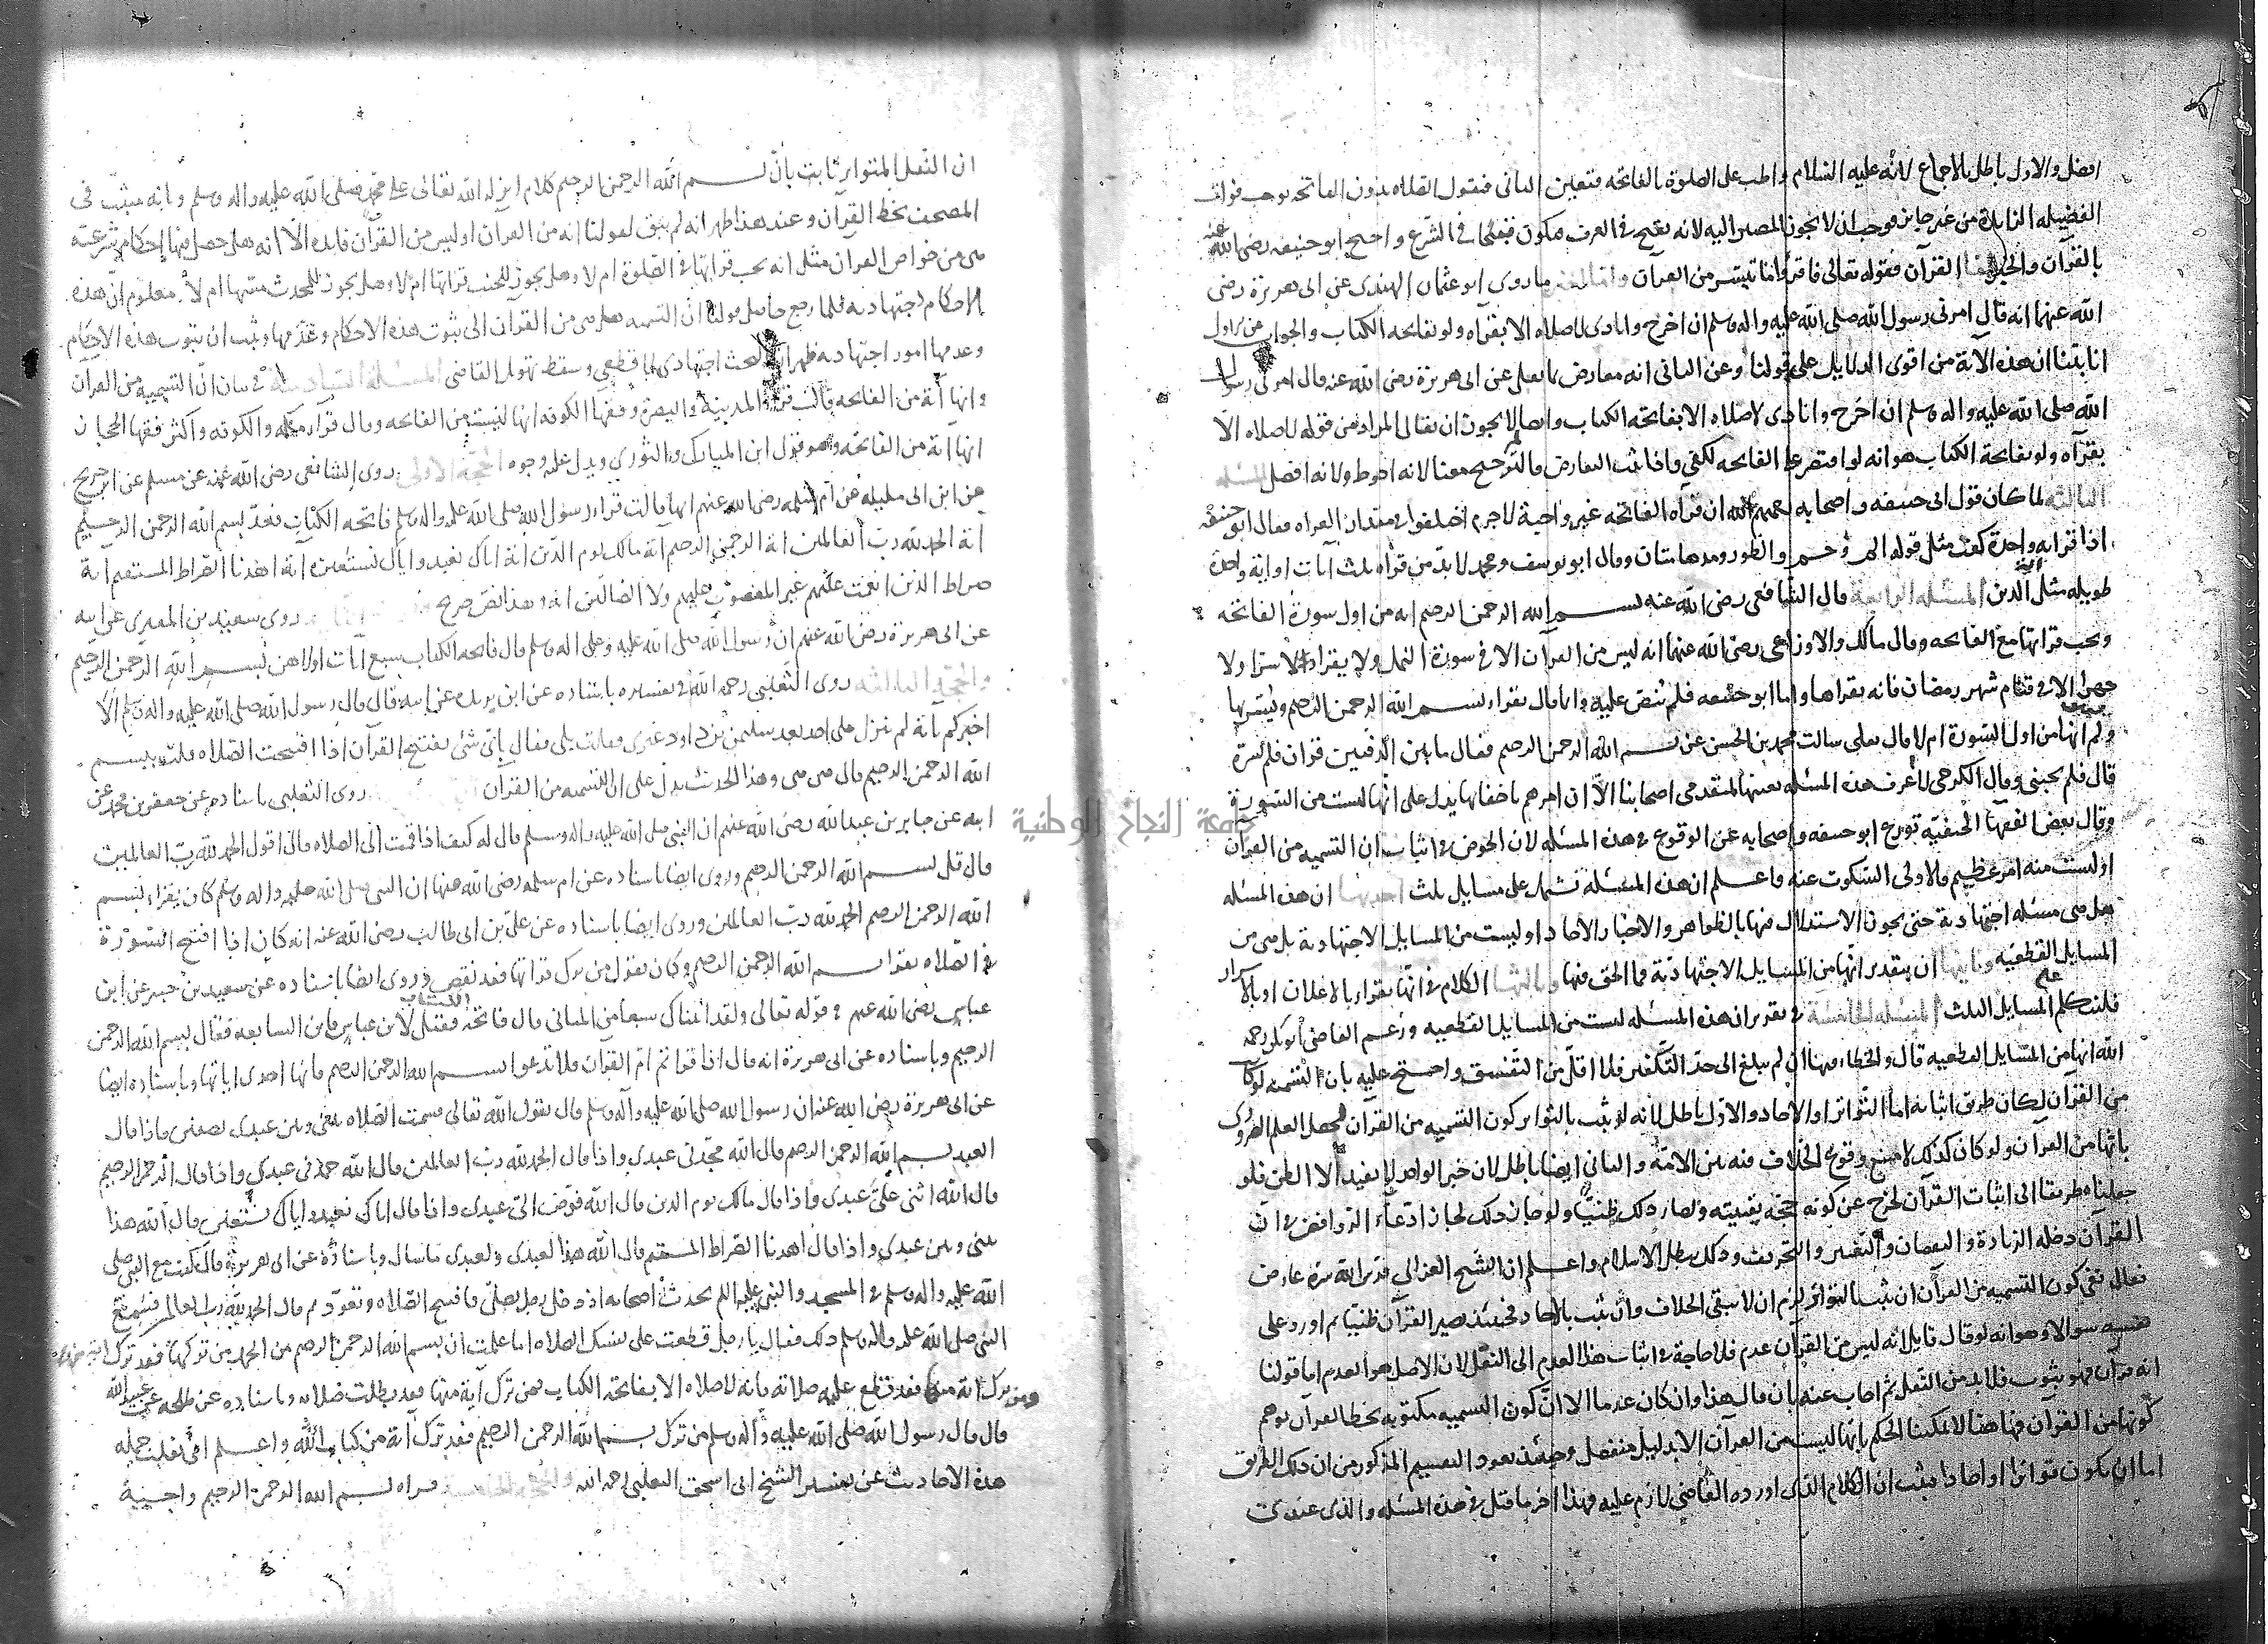 افضل والاول باطل بالاجماع لانه عليه السلام واظب على الصلوة بالفاتحه فتعين الثانى فنقول الصلاه بدون الفاتحه توجب فوات
الفضيله الزايدة من غير جابر فوجب ان لا يجوز المصير اليه لانه يقبح فى العرف فيكون قبيحا فى الشرع واحتج ابو حنيفه رضى الله عنه
بالقرآن والخبر اما القرآن فقوله تعالى فاقرؤا ما تيسر من القرآن واما الخبر ما روى ابو عثمان النهدى عن ابى هريرة رضى
الله عنهما انه قال امرنى رسول الله صلى الله عليه واله وسلم ان اخرج وانادى لا صلاه الا بقراه ولو بفاتحه الكتاب والجواب عن الاول
انا بيّنا ان هذه الآية من اقوى الدلايل على قولنا وعن الثانى انه معارض بما نقل عن ابى هريرة رضى الله عنه قال امرنى رسول
الله صلى الله عليه واله وسلم ان اخرج وانادى لا صلاه الا بفاتحه الكتاب وايضا لا يجوز ان يقال المراد من قوله لا صلاه الا
بقراه ولو بفاتحة الكتاب هو انه لو اقتصر على الفاتحه لكفى واذا ثبت التعارض فالترجيح معنا لانه احوط ولانه افضل المسئله
الثالثه لما كان قول ابى حنيفه واصحابه رحمهم الله ان قراه الفاتحه غير واجبة لا جرم اختلفوا فى مقدار القراه فقال ابو حنيفه
اذا قرا آية واحدة كفت مثل قوله الم وحم والطور ومدهامتان وقال ابو يوسف ومحمد لا بد من قراه ثلث آيات او اية واحدة
طويله مثل آية الدين المسئله الرابعة قال الشافعى رضى الله عنه بسم الله الرحمن الرحيم اية من اول سورة الفاتحه
ويجب قراتها مع الفاتحه وقال مالك والاوزاعى رضى الله عنهما انه ليس من القرآن الا فى سورة النمل ولا يقرا لا سرا ولا
جهرا الا فى قيام شهر رمضان فانه يقراها واما ابو حنيفه فلم ينص عليه وانما قال يقراء بسم الله الرحمن الرحيم ويسر بها
ولم يقل انها من اول السورة ام لا قال يعلى سالت محمد بن الحسن عن بسم الله الرحمن الرحيم فقال ما بين الدفتين قران فلم تسره
قال فلم يجبنى وقال الكرخى لا اعرف هذه المسئله بعينها لمتقدمى اصحابنا الا ان امرهم باخفائها يدل على انها ليست من السورة
وقال بعض الفقها الحنفية تورع ابو حنيفه واصحابه عن الوقوع فى هذه المسئله لان الخوض فى اثبات ان التسميه من القرآن
او ليست منه امر عظيم فالاولى السكوت عنه واعلم ان هذه المسئلة تشتمل على مسايل ثلث احديها ان هذه المسئله
هل هى مسئله اجتهادية حتى يجوز الاستدلال فيها بالظواهر والاخبار الاحاد او ليست من المسايل الاجتهادية بل هى من
المسايل القطعيه وثانيها ان بتقدير انها من المسايل الاجتهاديّة فما الحق فيها وثالثها الكلام فى انها تقراء بالاعلان او بالاسرار
فلنتكلم على المسايل الثلث المسئله الخامسة فى تقرير ان هذه المسئله ليست من المسايل القطعيه وزعم القاضى ابو بكر رحمه
الله انها من المسايل القطعيه قال والخطاء فيها ان لم يبلغ الى حد التكفير فلا اقل من التفسيق واحتج عليه بان التسميه لو كان
من القرآن لكان طريق اثباته اما التواتر او الاحاد والاول باطل لانه لو ثبت بالتواتر كون التسميه من القرآن لحصل العلم الضرورى
بانها من القرآن ولو كان كذلك لامتنع وقوع الخلاف فيه بين الامة والثانى ايضا باطل لان خبر الواحد لا يفيد الا الظن فلو
جعلناه طريقا الى اثبات القرآن لخرج عن كونه حجة يقينيته ولصار ذلك ظنيّا ولو جاز ذلك لجاز ادعاء الروافض فى ان
القرآن دخله الزيادة والنقصان والتغيير والتحريف وذلك يبطل الاسلام واعلم ان الشيخ الغزالى قدس الله سره عارض
فقال نفى كون التسميه من القرآن ان ثبت بالتواتر لزم ان لا يبقى الخلاف وان ثبت بالاحاد فحينئذ يصير القرآن ظنيّا ثم اورد على
نفسه سوالا وهو انه لو قال قايل انه ليس من القرآن عدم فلا حاجة فى اثبات هذا العدم الى النقل لان الاصل هو العدم اما قولنا
انه قرآن فهو ثبوت فلا بد من النقل ثم اجاب عنه بان قال هذا وان كان عدما الا ان كون التسميه مكتوبه بخط القرآن يوهم
كونها من القرآن فها هنا لا يمكننا الحكم بانها ليست من القرآن الا بدليل منفصل وحينئذ يعود التقسيم المذكور من ان ذلك الطريق
اما ان يكون تواترا او احادا فثبت ان الكلام الذى اورده القاضى لازم عليه فهذا اخر ما قيل فى هذه المسئله والذى عندى
ان النقل المتواتر ثابت بانّ بسم الله الرحمن الرحيم كلام انزله الله تعالى على محمد صلى الله عليه واله وسلم وبانه مثبت فى
المصحف بخط القرآن وعند هذا ظهر انه لم يبق لقولنا انه من القرآن او ليس من القرآن فايده الا انه هل حصل فيها احكام شرعية
هى من خواص القرآن مثل انه يجب قراتها فى الصلوة ام لا وهل يجوز للجنب قراتها ام لا وهل يجوز للمحدث مسها ام لا ومعلوم ان هذه
الاحكام اجتهاديه فلما رجع حاصل قولنا ان التسميه هل هى من القرآن الى ثبوت هذه الاحكام وعدمها وثبت ان ثبوت هذه الاحكام
وعدمها امور اجتهاديه ظهر ان البحث اجتهادى لا قطعى وسقط تهويل القاضى المسئله السادسة فى بيان انّ التسميه من القرآن
وانها آية من الفاتحه قالت قراء المدينة والبصرة وفقها الكوفه انها ليست من الفاتحه وقال قراء مكه والكوفه واكثر فقها الحجاز
انها اية من الفاتحه وهو قول ابن المبارك والثورى ويدل عليه وجوه الحجّة الاولى روى الشافعى رضى الله عنه عن مسلم عن ابن جريج
عن ابن ابى مليكه عن ام سلمه رضى الله عنهم انها قالت قراء رسول الله صلى الله عليه واله وسلم فاتحه الكتاب فعدّ بسم الله الرحمن الرحيم
اية الحمد لله رب العالمين اية الرحمن الرحيم اية مالك يوم الدين اية اياك نعبد واياك نستعين اية اهدنا الصراط المستقيم اية
صراط الذين انعمت عليهم غير المغضوب عليهم ولا الضالين اية وهذا نص صريح روى سعيد بن المقبرى عن ابيه
عن ابى هريرة رضى الله عنهم ان رسول الله صلى الله عليه وعلى اله وسلم قال فاتحه الكتاب سبع آيات اولاهن بسم الله الرحمن الرحيم
والحجة الثالثه روى الثعلبى رحمه الله فى تفسيره باسناده عن ابن بريده عن ابيه قال قال رسول الله صلى الله عليه واله وسلم الا
اخبركم باية لم تنزل على احد بعد سليمن بن داود غيرى فقلت بلى فقال باىّ شئ تفتتح القرآن اذا افتتحت الصلاه قلت ببسم
الله الرحمن الرحيم قال هى هى وهذا الحديث يدل على ان التسميه من القرآن روى الثعلبى باسناده عن جعفر بن محمد عن
ابيه عن جابر بن عبد الله رضى الله عنهم ان النبى صلى الله عليه واله وسلم قال له كيف اذا قمت الى الصلاه قال اقول الحمد لله رب العالمين
قال قل بسم الله الرحمن الرحيم وروى ايضا باسناده عن ام سلمه رضى الله عنها ان النبى صلى الله عليه واله وسلم كان يقراء بسم
الله الرحمن الرحيم الحمد لله رب العالمين وروى ايضا باسناده عن علىّ بن ابى طالب رضى الله عنه انه كان اذا افتتح السورة
فى الصلاه يقرا بسم الله الرحمن الرحيم وكان يقول من ترك قراتها فقد نقص وروى ايضا باسناده عن سعيد بن جبير عن ابن
عباس رضى الله عنهم فى قوله تعالى ولقد اتيناك سبعا من المثانى قال فاتحة الكتاب فقيل لابن عباس فاين السابعه فقال بسم الله الرحمن
الرحيم وباسناده عن ابى هريرة انه قال اذا قراتم امّ القرآن فلا تدعوا بسم الله الرحمن الرحيم فانها احدى اياتها وباسناده ايضا
عن ابى هريرة رضى الله عنه ان رسول الله صلى الله عليه واله وسلم قال يقول الله تعالى قسمت الصلاه بينى وبين عبدى نصفين فاذا قال
العبد بسم الله الرحمن الرحيم قال الله مجّدنى عبدى واذا قال الحمد لله رب العالمين قال الله حمدنى عبدى واذا قال الرحمن الرحيم
قال الله اثنى علىّ عبدى واذا قال مالك يوم الدين قال الله فوّض الىّ عبدى واذا قال اياك نعبد واياك نستعين قال الله هذا
بينى وبين عبدى واذا قال اهدنا الصراط المستقيم قال الله هذا لعبدى ولعبدى ما سال وباسناده عن ابى هريرة قال كنت مع النبى صلى
الله عليه واله وسلم فى المسجد والنبى عليه السلم يحدث اصحابه اذ دخل رجل يصلى فافتتح الصلاه وتعوّد ثم قال الحمد لله رب العالمين فسمع
النبى صلى الله عليه واله وسلم ذلك فقال يا رجل قطعت على نفسك الصلاه اما علمت ان بسم الله الرحمن الرحيم من الحمد من تركها فقد ترك اية
ومن ترك اية منها فقد قطع عليه صلاته فانه لا صلاه الا بفاتحة الكتاب فمن ترك آية منها فقد بطلت صلاته وباسناده عن طلحه بن عبيد الله
قال قال رسول الله صلى الله عليه واله وسلم من ترك بسم الله الرحمن الرحيم فقد ترك آية من كتاب الله واعلم انى نقلت جمله
هذه الاحاديث عن تفسير الشيخ ابى اسحق الثعلبى رحمه الله قراه بسم الله الرحمن الرحيم واجبة
جامعة النجاح الوطنية